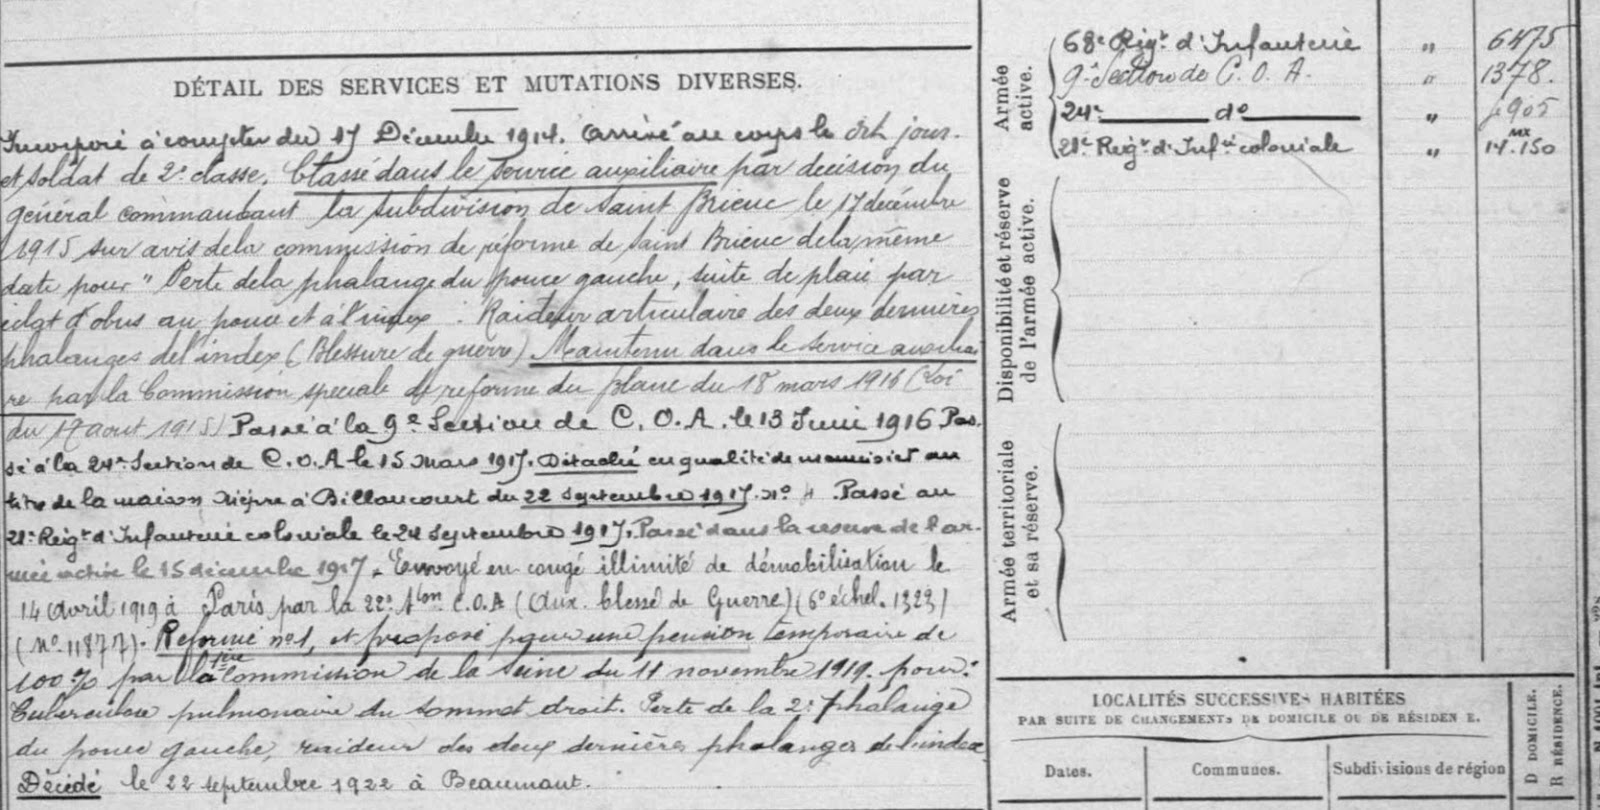 DÉTAIL DES SERVICES ET MUTATIONS DIVERSES.
Incorporé à compter du 17 Décembre 1914. Arrivé au corps le dit jour.
et soldat de 2e classe. Classé dans le service auxiliaire par décision du
général commandant la subdivision de Saint Brieuc le 17 décembre
1915 sur avis de la commission de réforme de Saint Brieuc de la même
date pour "Perte de la phalange du pouce gauche, suite de plaie par
éclat d'obus au pouce et à l'index. Raideur articulaire des deux dernières
phalanges de l'index (Blessure de guerre) Maintenu dans le service auxiliai
re par la Commission spéciale de réforme du Blanc du 18 mars 1916 (Loi
du 17 aout 1915) Passé à la 9e Section de C. O. A. le 13 Juin 1916 Pas-
sé à la 24e Section de C. O. A le 15 Mars 1917. Détaché en qualité de au
titre de la maison à Billancourt du 22 septembre 1917. No 4 Passé au
21e Régt d'Infanterie coloniale le 24 septembre 1917. Passé dans la réserve de l'ar-
mée active le 15 décembre 1917. Envoyé en congé illimité de démobilisation le
14 Avril 1919 à Paris par la 22e Son C.O.A (Aux. blessé de Guerre) (6e échel. 1323)
(No. 11877). Réformé no 1, et proposé pour une pension temporaire de
100 % par la 1ère Commission de la Seine du 11 novembre 1919. pour:
Tuberculose pulmonaire du sommet droit. Perte de la 2e phalange
du pouce gauche, raideur des deux dernières phalanges de l'index
Décédé le 22 septembre 1922 à Beaumont.
Armée active.
68e Régt d'Infanterie " 6475
9e Section de C. O. A. " 1378.
24e do " 4905
21e Régt d'Infie coloniale " 14.150
Disponibilité et réserve de l'armée active.
Armée territoriale et sa réserve.
LOCALITÉS SUCCESSIVES HABITÉES
PAR SUITE DE CHANGEMENTS DE DOMICILE OU DE RÉSIDEN E.
Dates.
Communes.
Subdivisions de région
D DOMICILE.
R RÉSIDENCE.